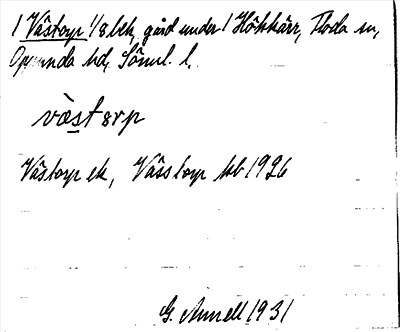 1 Västorp 1/8 lth, gård under 1 Hökkärr, Floda sn,
Oppunda hd, Söml. l.
väst årp
Västorp ek, Vässtorp kb 1926
G. Annell 1931